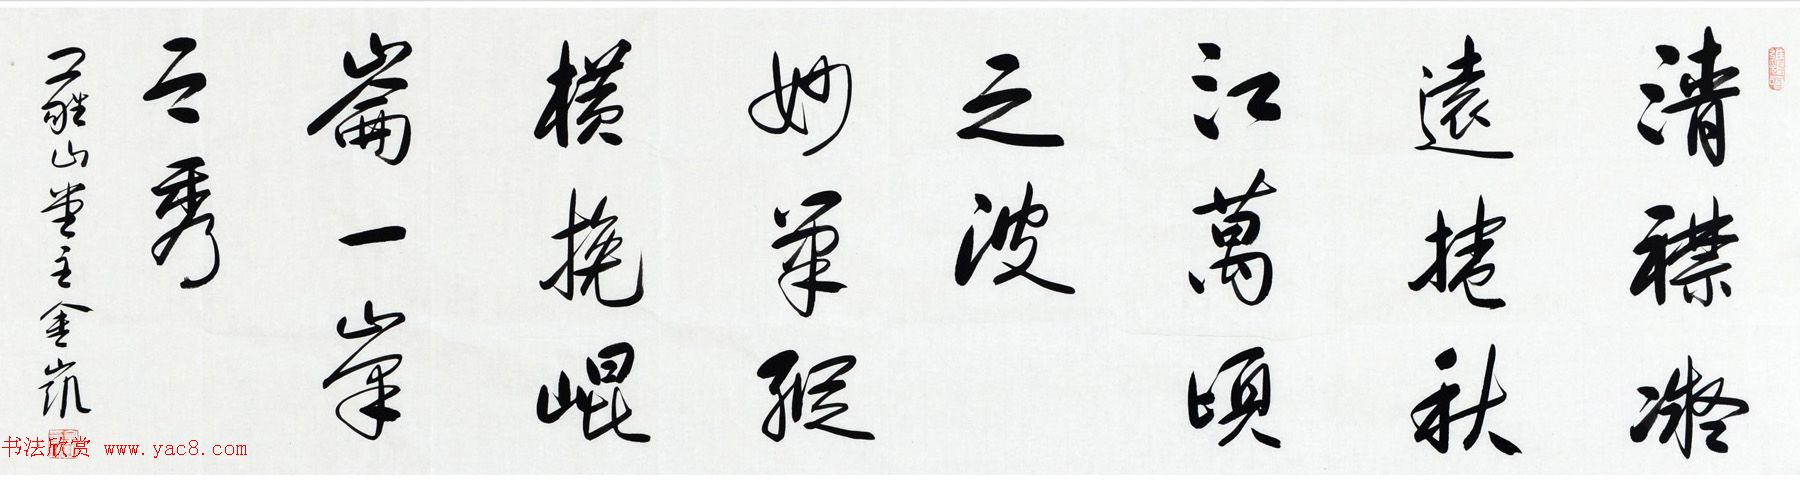 清襟凝
遠捲秋
江萬頃
之波
妙筆縱
橫挽崐
崙一峯
之秀
山堂主金凱
书法欣赏 www.yac8.com